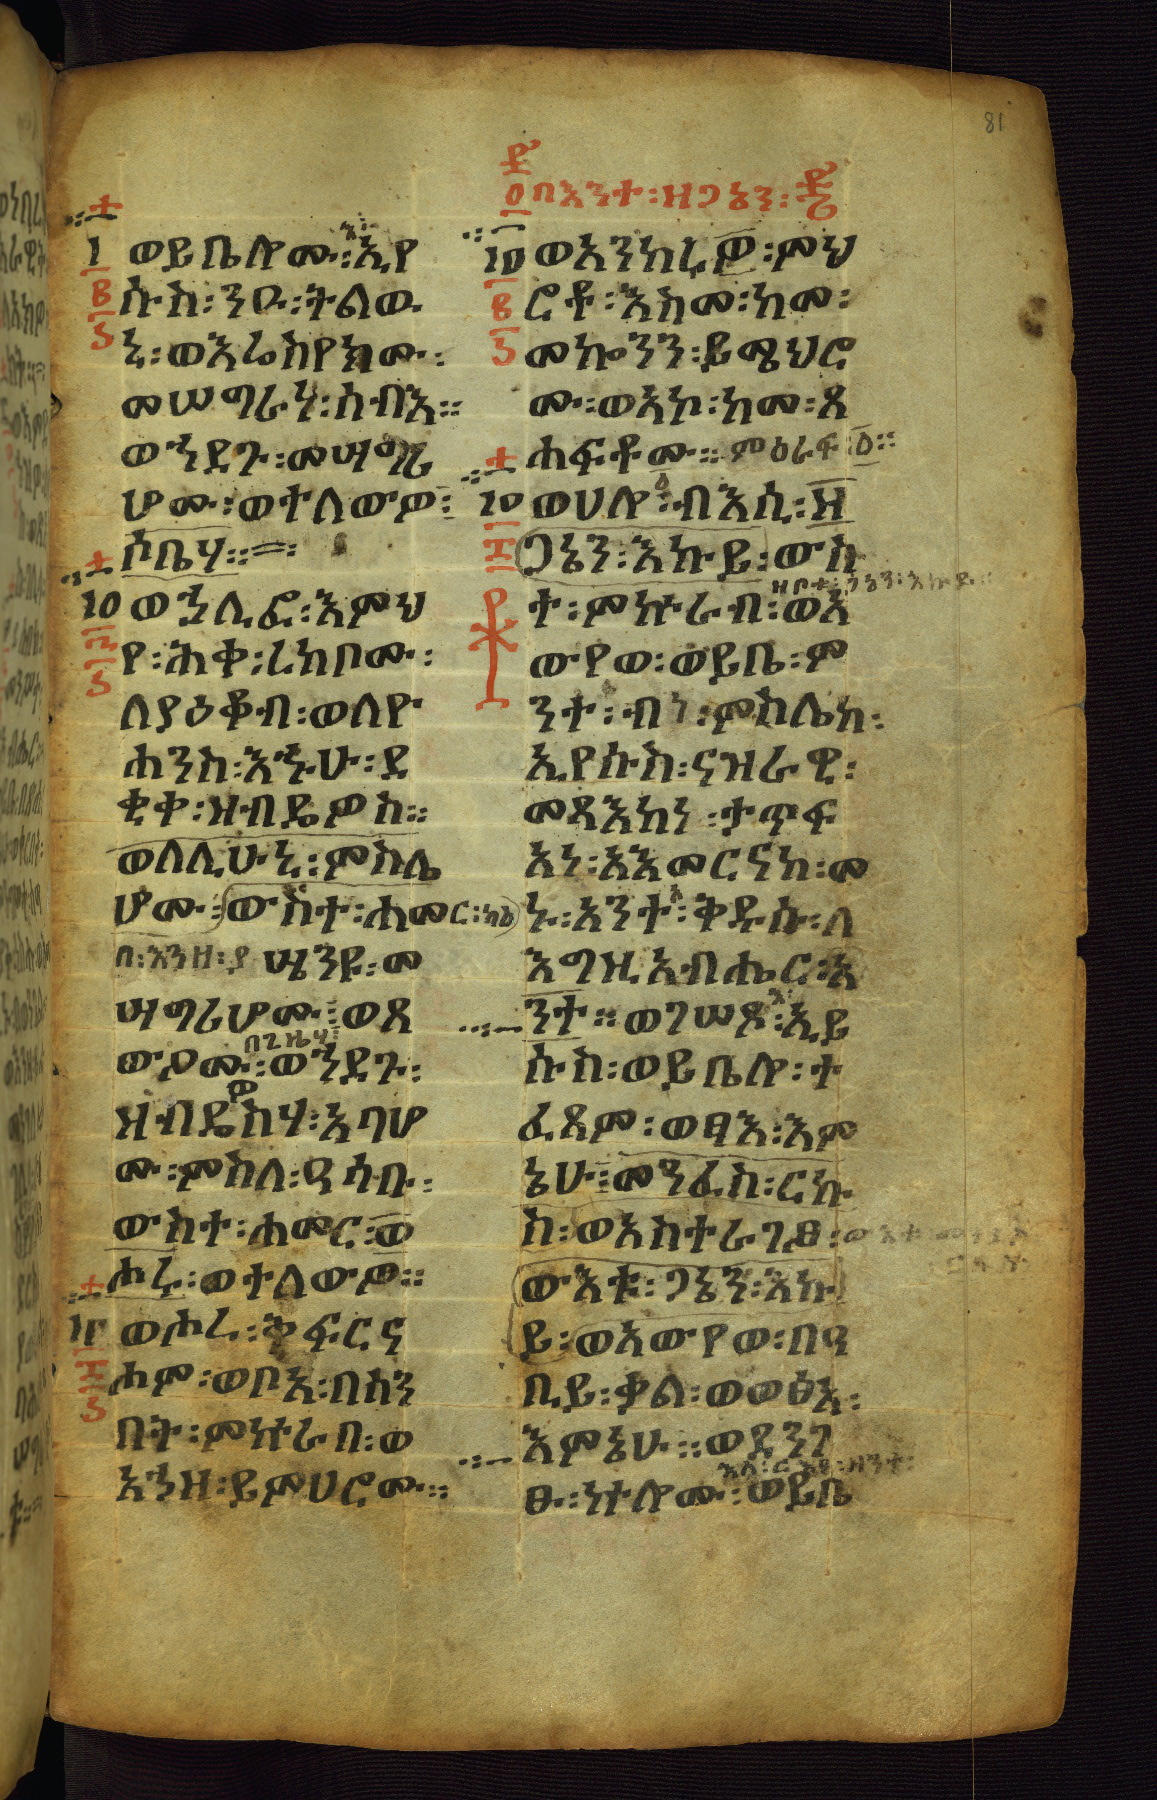 81
በእንተ፡ዘጋኔን፡
ወይቤሎሙ፡ኢየ
ሱስ፡ንዑ፡ትልወ
ኒ፡ወእሬስየክሙ፡
መሠግራነ፡ሰብእ፡፡
ወኀደጉ፡መሣግሪ
ሆሙ፡ወተለውዎ፡
ሶቤሃ፡፡
ወኀሊፎ፡እምህ
የ፡ሕቀ፡ረከቦሙ፡
ለያዕቆብ፡ወለዮ
ሐንስ፡እኁሁ፡ደ
ቂቀ፡ዘብዴዎስ፡፡
ወለሊሁኒ፡ምስሌ
ሆሙ፡ውስተ፡ሐመር፡
በ፡እንዘ፡ያሤንዩ፡መ
ሣግሪሆሙ፡ወጸ
ውዖሙ፡በጊዜሃ፡ወኀደጉ፡
ዘብዴዎስሃ፡አባሆ
ሙ፡ምስለ፡ዓሳቡ፡
ውስተ፡ሐመር፡ወ
ሖሩ፡ወተለውዎ፡፡
ወሖረ፡ቅፍርና
ሖም፡ወቦአ፡በሰን
በት፡ምኵራበ፡ወ
አኀዘ፡ይምህሮሙ፡፡
ወአንከሩ፡ምህ
ሮቶ፡እስመ፡ከመ፡
መኰንን፡ይሜህሮ
ሙ፡ወአኮ፡ከመ፡ጸ
ሐፍቶሙ፡፡ምዕራፍ፡
ወሀሎ፡ብእሲ፡ዘ
ጋኔን፡እኩይ፡ውስ
ተ፡ምኵራብ፡ወአ
ውየወ፡ወይቤ፡ም
ንተ፡ብነ፡ምስሌከ፡
ኢየሱስ፡ናዝራዊ፡
መጻእከነ፡ታጥፍ
አነ፡አአመርናከ፡መ
ኑ፡አንተ፡ቅዱሱ፡ለ
እግዚአብሔር፡አ
ንተ፡፡ወገሠጾ፡ኢየ
ሱስ፡ወይቤሎ፡ተ
ፈጸም፡ወፃእ፡እም
ኔሁ፡መንፈስ፡ርኩ
ስ፡ወአስተራገፆ፡
ውእቱ፡ጋኔን፡እኩ
ይ፡ወአውየወ፡በዓ
ቢይ፡ቃል፡ወወፅአ፡
እምኔሁ፡፡ወደንገ
ፁ፡ኵሎሙ፡ወይቤ